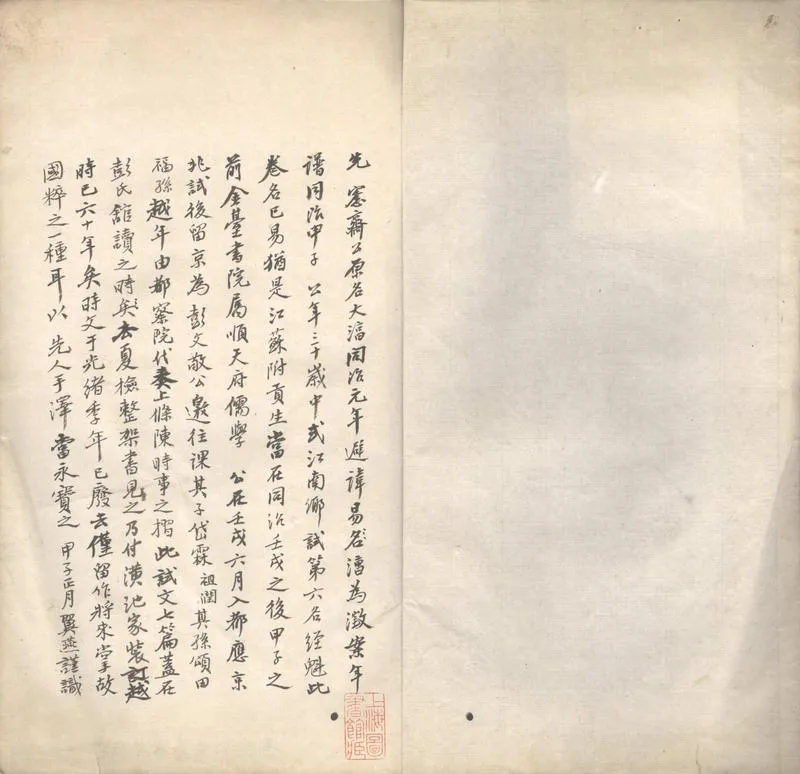 先 愙齋公原名大淳同治元年避諱易名淳為澂案年
譜同治甲子 公年三十歲中式江南鄉試第六名經魁此
卷名已易猶是江蘇附貢生當在同治壬戌之後甲子之
前金臺書院屬順天府儒學 公在壬戌六月入都應京
兆試後留京為彭文敬公邀往課其子岱霖祖潤其孫頌田
福孫越年由都察院代奏上條陳時事之摺此試文七篇蓋在
彭氏館讀之時矣去夏檢整架書見之乃付潢池家裝訂越
時已六十年矣時文于光緒季年已廢去僅留作將來掌故
國粹之一種耳以 先人手澤當永寶之 甲子正月翼燕謹識
上海圖
書館藏